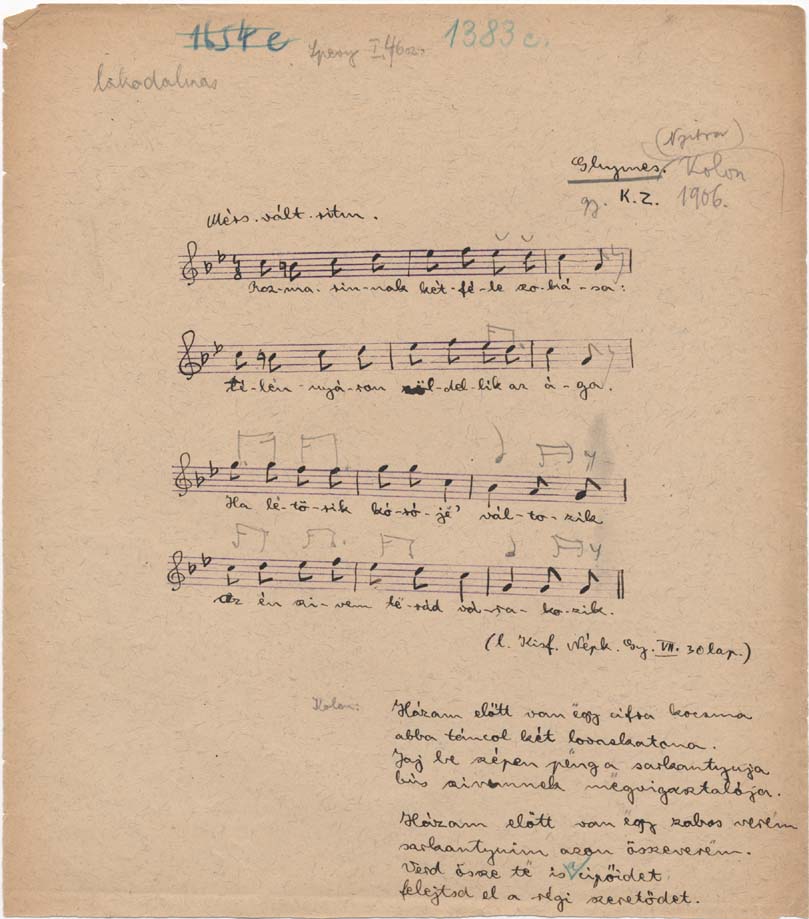 1654 e Speny I. 46 sz. 1383 c.
lakodalmas
(Nyitra)
Ghymes. Kolon
gy. K. Z. 1906.
Mérs. vált. ritm.
Roz-ma-rin-nak két-fé-le szo-ká-sa:
té-lén-nyá-ron zöl-del-lik az á-ga.
Ha lé-tö-rik kó-ró-jé' vál-to-zik
az én szi-vem té-rád vá-ra-ko-zik.
(l. Kisf. Népk. Gy. VII. 30 lap.)
Kolon:
Házam előtt van ëgy cifra kocsma
abba táncol két lovaskatona.
Jaj be szépen pëng a sarkantyuja
bús szivemnek mëgvigasztalója.
Házam előtt van ëgy zabos verëm
sarkantyuim azon összeverëm.
Verd össze të is a cipőidet
felejtsd el a régi szeretődet.